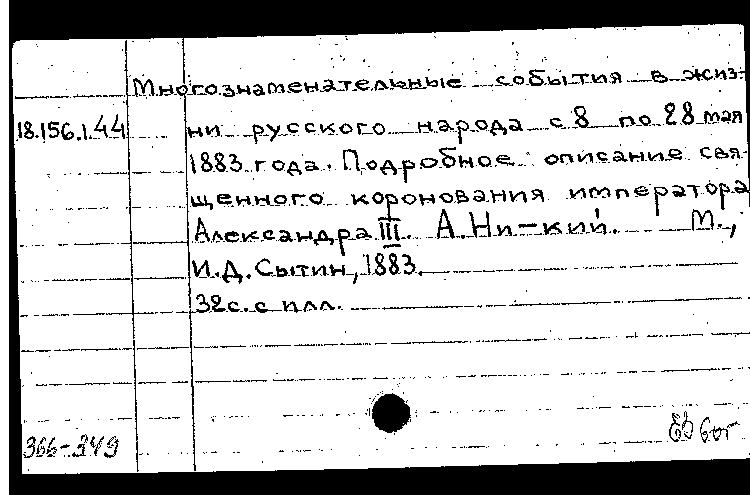 Многознаменательные события в жиз-
18.156.1.44 ни русского народа с 8 по 28 мая
1883 года. Подробное описание свя-
щенного коронования императора
Александра III. А.Ни-кий. М.,
И.Д.Сытин, 1883.
32с. с илл.
366-349